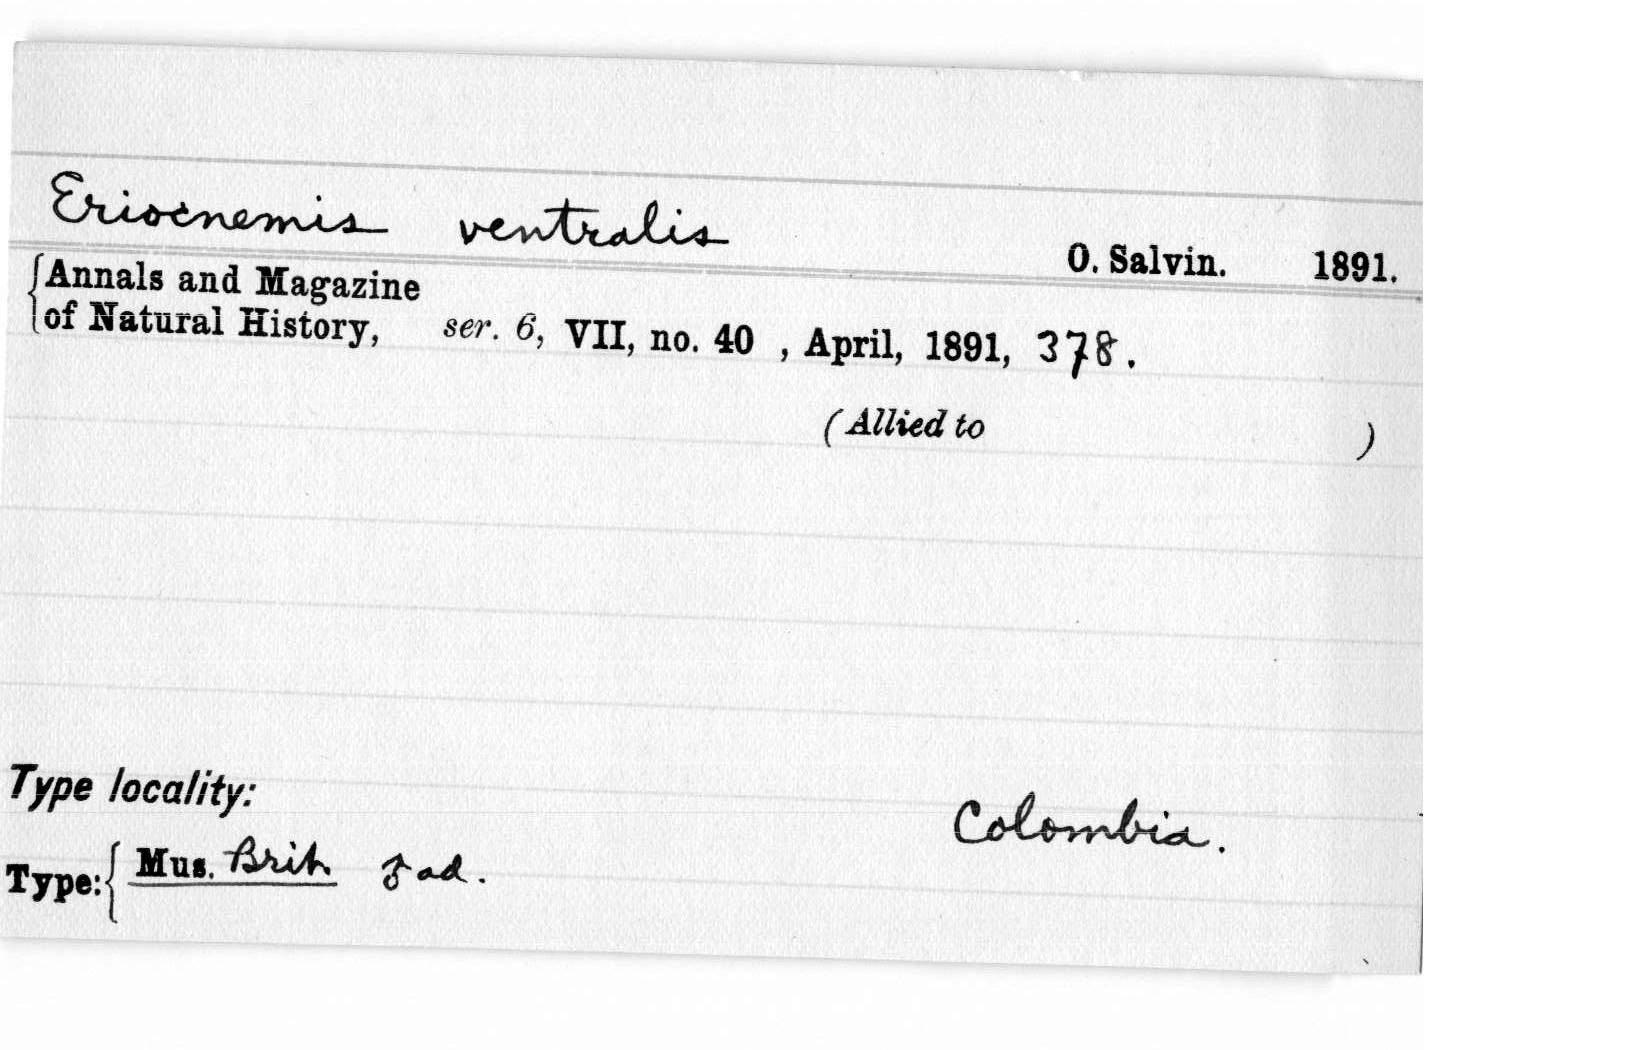 Eriocnemis ventralis O. Salvin. 1891.
{Annals and Magazine
of Natural History, ser. 6, VII, no. 40 , April, 1891, 378.
(Allied to )
Type locality:
Colombia.
Type:{ Mus. Brit. ♂ ad.